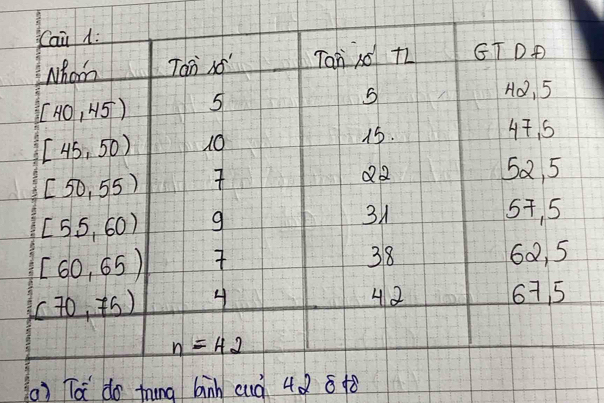 Câu 1:
Nhóm Tần số Tần số TL GTDĐ
[40,45) 5 5 42,5
[45,50) 10 15. 47,5
[50,55) 7 22 52,5
[55,60) 9 31 57,5
[60,65) 7 38 62,5
[70,75) 4 42 67,5
n = 42
a) Tốc độ trung bình của 42 ô tô